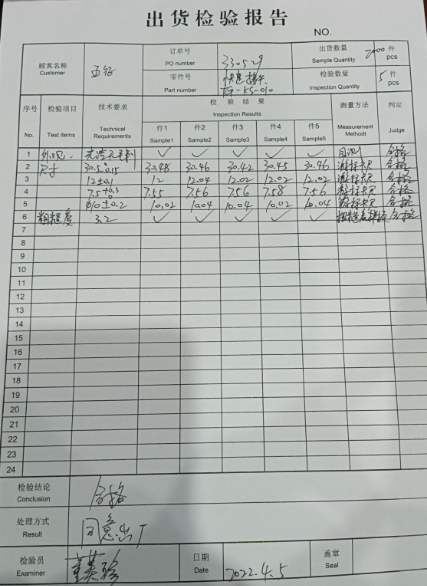 出货检验报告
NO.
顾客名称 Customer 订单号 PO number 330529 出货数量 Sample Quantity 件 pcs
零件号 Part number 检验数量 Inspection Quantity 5 件 pcs
序号 No. 检验项目 Test items 技术要求 Technical Requirements 检验结果 Inspection Results 测量方法 Measurement Method) 判定 Judge
件1 Sample1 件2 Sample2 件3 Sample3 件4 Sample4 件5 Sample5
1 外观 ✓ ✓ ✓ ✓ ✓ 目测 合格
2 尺寸 30.48 30.46 30.42 30.45 30.46 游标卡尺 合格
3 12±0.1 12 12.04 12.02 12.02 12.02 游标卡尺 合格
4 7.55 7.56 7.56 7.58 7.56 游标卡尺 合格
5 10.02 10.04 10.04 10.02 10.04 游标卡尺 合格
6 粗糙度 3.2 ✓ ✓ ✓ ✓ ✓ 合格
7
8
9
10
11
12
13
14
15
16
17
18
19
20
21
22
23
24
检验结论 Conclusion 合格
处理方式 Result 同意出厂
检验员 Examiner 日期 Date 2022.4.5 盖章 Seal